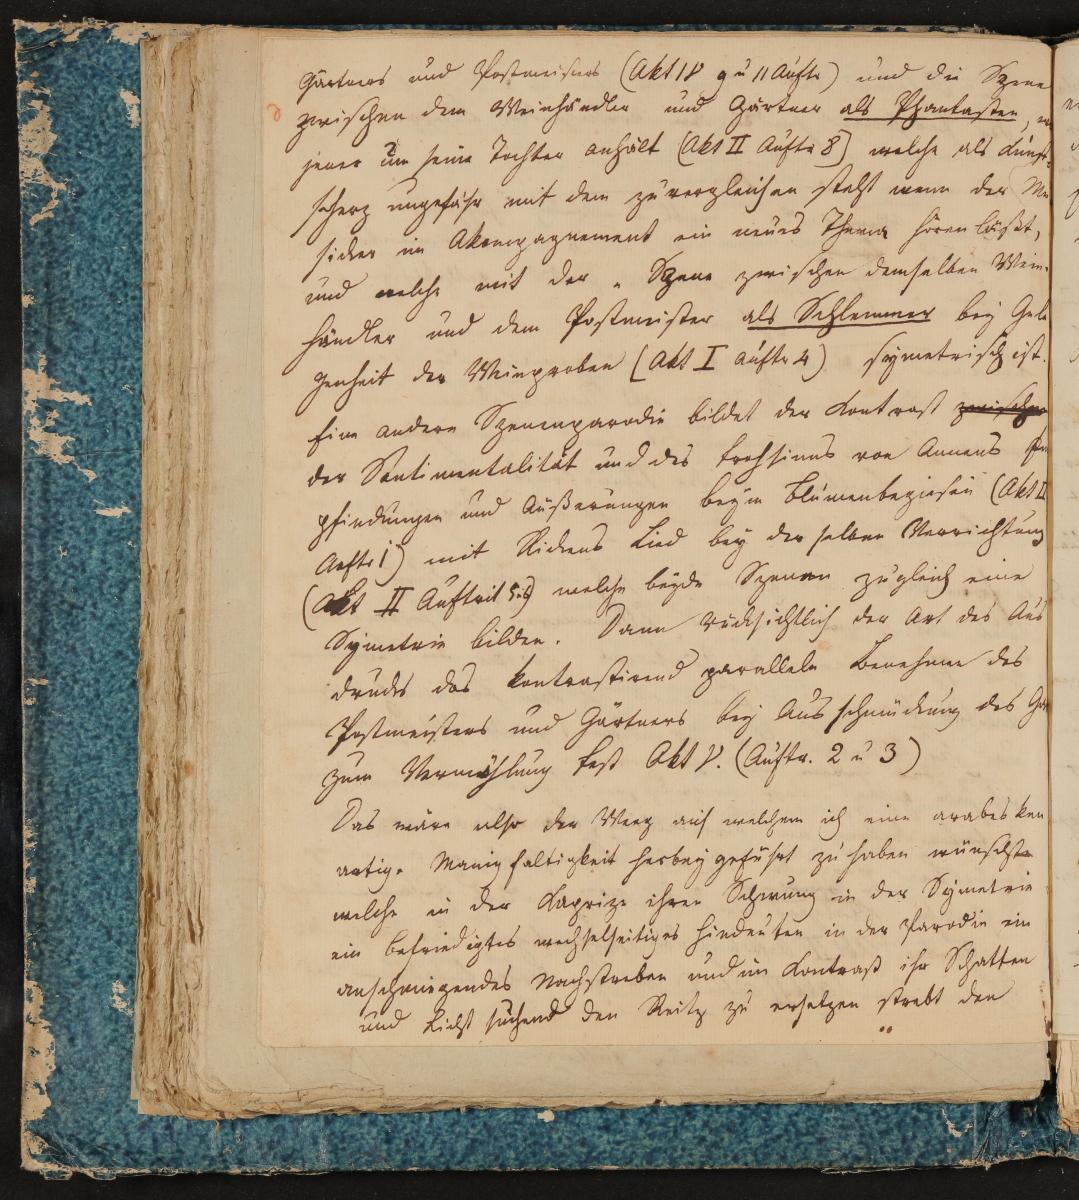 Gärtners und Postmeisters (Akt IV 9 u 11 Auftr) und die Szene
zwischen dem Weinhändler und Gärtner als Phantasten,
jener um seine Tochter anhält (Akt II Auftr 8) welche als Kunst-
scherz ungefähr mit dem zu vergleichen steht wenn der Mu
siker im Akompagnement ein neues Thema hören läßt,
und welche mit der Szene zwischen demselben Wein-
händler und dem Postmeister als Schlemmer bey Gele
genheit der Weinproben (Akt I Auftr 4) symetrisch ist.
Eine andere Szenenparodie bildet der Kontrast zwischen
der Sentimentalität und des Frohsinns von Annens Em
pfindungen und Äußerungen beym Blumenbegießen (Akt II
Auftr 1) mit Lied bey derselben Verrichtung
(Akt II Auftrit 5) welche beyde Szenen zugleich eine
Symetrie bilden. Dann rücksichtlich der Art des Aus
drucks das kontrastirend parallele Benehmen des
Postmeisters und Gärtners bey Ausschmückung des
zum Vermählung Fest Akt V. (Auftr. 2 u 3)
Das wäre also der Weg auf welchem ich eine arabesken
artige Manigfaltigkeit herbey geführt zu haben wünschte
welche in der Kaprize ihren Schwung in der Symetrie
ein befriedigtes wechselseitiges Hindeuten in der Parodie ein
anschmiegendes Nachstreben und im Kontrast ihr Schatten
und Licht suchend den Reitz zu ersetzen strebt den